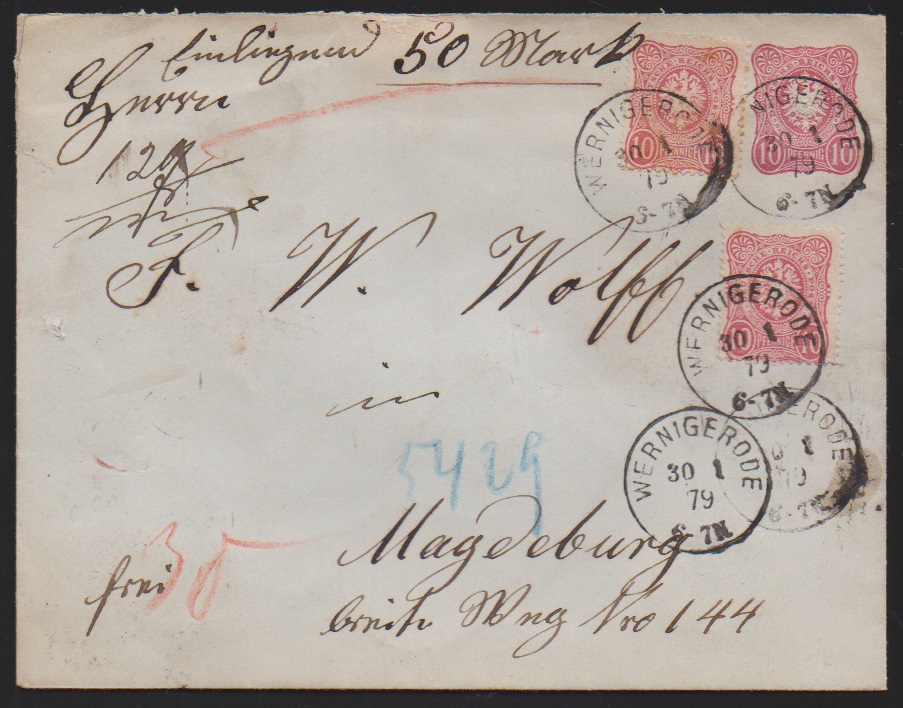 Einliegend 50 Mark
Herrn
129
F. W. Wolff
in
5429
Magdeburg
breite Weg Nro 144
frei
30
10 PFENNIG 10
WERNIGERODE
30 1
79
6-7N
10 PFENNIG 10
WERNIGERODE
30 1
79
6-7N
10 PFENNIG 10
WERNIGERODE
30 1
79
6-7N
WERNIGERODE
30 1
79
6-7N
ERODE
1
79
6-7N